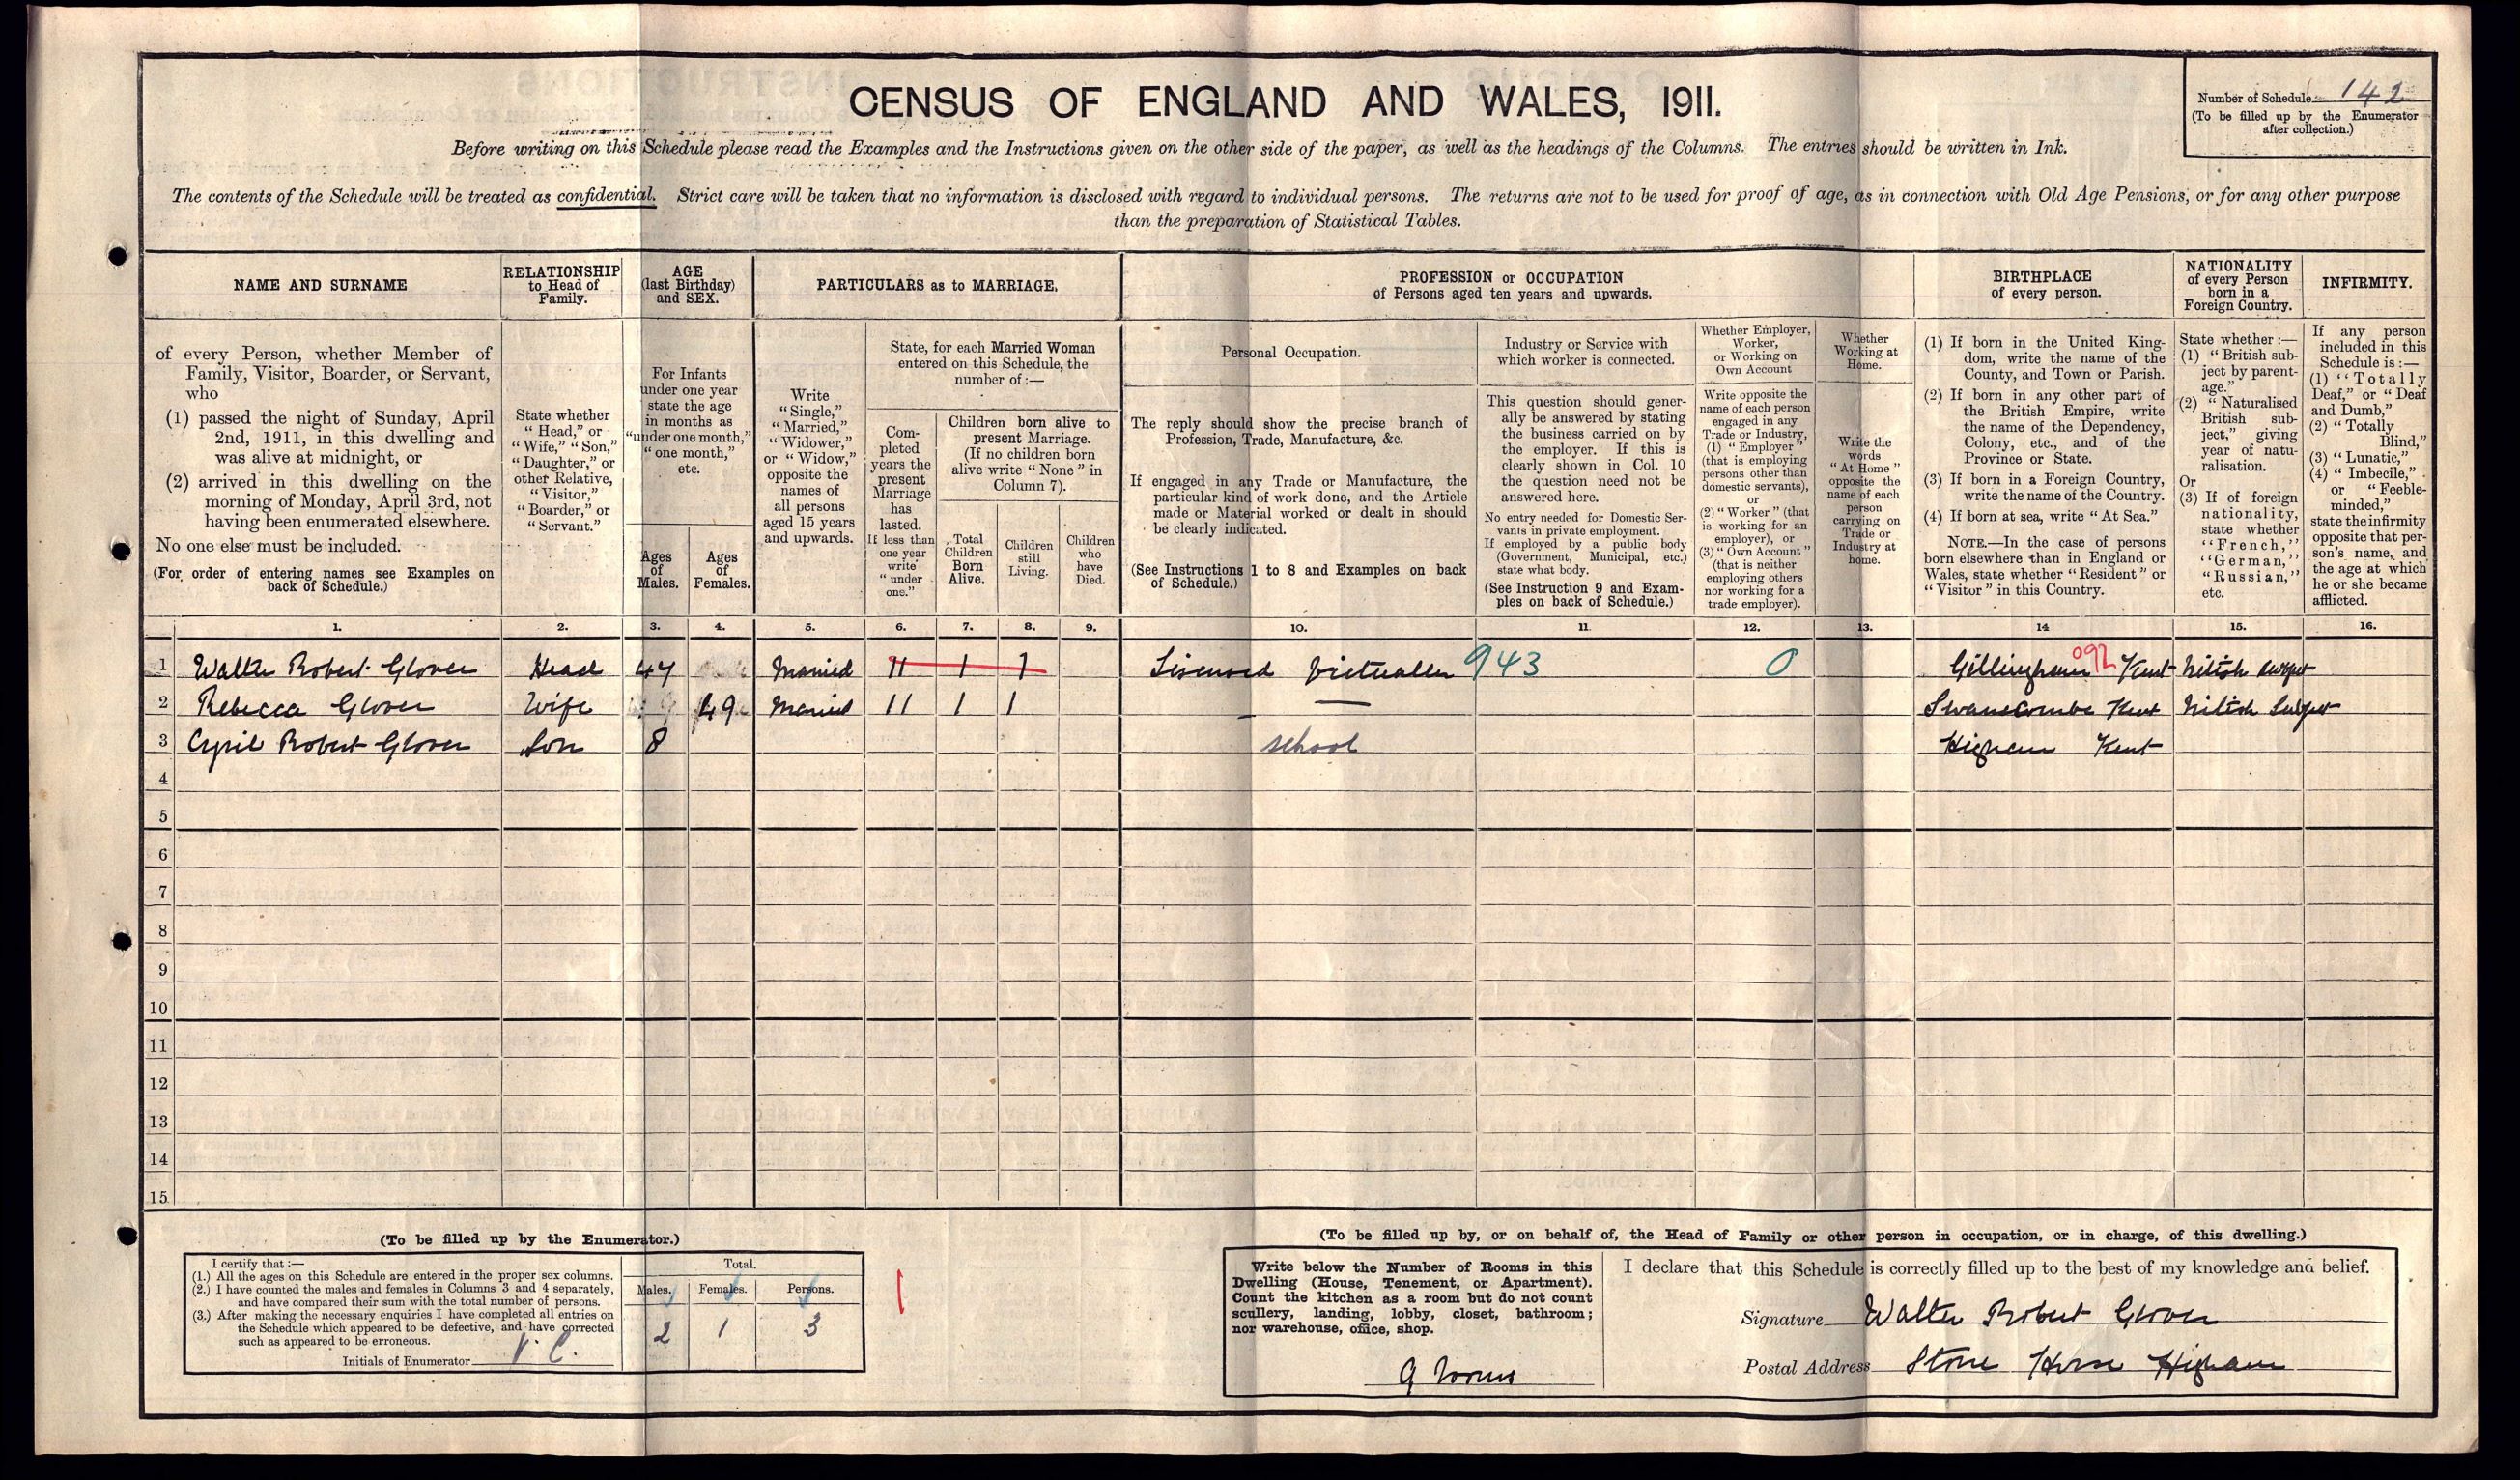 CENSUS OF ENGLAND AND WALES, 1911.
Number of Schedule 142
(To be filled up by the Enumerator
after collection.)
Before writing on this Schedule please read the Examples and the Instructions given on the other side of the paper, as well as the headings of the Columns. The entries should be written in Ink.
The contents of the Schedule will be treated as confidential. Strict care will be taken that no information is disclosed with regard to individual persons. The returns are not to be used for proof of age, as in connection with Old Age Pensions, or for any other purpose
than the preparation of Statistical Tables.
NAME AND SURNAME
of every Person, whether Member of
Family, Visitor, Boarder, or Servant,
who
(1) passed the night of Sunday, April
2nd, 1911, in this dwelling and
was alive at midnight, or
(2) arrived in this dwelling on the
morning of Monday, April 3rd, not
having been enumerated elsewhere.
No one else must be included.
(For order of entering names see Examples on
back of Schedule.)
RELATIONSHIP
to Head of
Family.
State whether
"Head," or
"Wife," "Son,"
"Daughter," or
other Relative,
"Visitor,"
"Boarder," or
"Servant."
AGE
(last Birthday)
and SEX.
For Infants
under one year
state the age
in months as
"under one month,"
"one month,"
etc.
Ages
of
Males.
Ages
of
Females.
PARTICULARS as to MARRIAGE.
Write
"Single,"
"Married,"
"Widower,"
or "Widow,"
opposite the
names of
all persons
aged 15 years
and upwards.
State, for each Married Woman
entered on this Schedule, the
number of:—
Com-
pleted
years the
present
Marriage
has
lasted.
If less than
one year
write
"under
one."
Children born alive to
present Marriage.
(If no children born
alive write "None" in
Column 7).
Total
Children
Born
Alive.
Children
still
Living.
Children
who
have
Died.
PROFESSION or OCCUPATION
of Persons aged ten years and upwards.
Personal Occupation.
The reply should show the precise branch of
Profession, Trade, Manufacture, &c.
If engaged in any Trade or Manufacture, the
particular kind of work done, and the Article
made or Material worked or dealt in should
be clearly indicated.
(See Instructions 1 to 8 and Examples on back
of Schedule.)
Industry or Service with
which worker is connected.
This question should gener-
ally be answered by stating
the business carried on by
the employer. If this is
clearly shown in Col. 10
the question need not be
answered here.
No entry needed for Domestic Ser-
vants in private employment.
If employed by a public body
(Government, Municipal, etc.)
state what body.
(See Instruction 9 and Exam-
ples on back of Schedule.)
Whether Employer,
Worker,
or Working on
Own Account
Write opposite the
name of each person
engaged in any
Trade or Industry,
(1) "Employer"
(that is employing
persons other than
domestic servants),
or
(2) "Worker" (that
is working for an
employer), or
(3) "Own Account"
(that is neither
employing others
nor working for a
trade employer).
Whether
Working at
Home.
Write the
words
"At Home"
opposite the
name of each
person
carrying on
Trade or
Industry at
home.
BIRTHPLACE
of every person.
(1) If born in the United King-
dom, write the name of the
County, and Town or Parish.
(2) If born in any other part of
the British Empire, write
the name of the Dependency,
Colony, etc., and of the
Province or State.
(3) If born in a Foreign Country,
write the name of the Country.
(4) If born at sea, write "At Sea."
NOTE.—In the case of persons
born elsewhere than in England or
Wales, state whether "Resident" or
"Visitor" in this Country.
NATIONALITY
of every Person
born in a
Foreign Country.
State whether:—
(1) "British sub-
ject by parent-
age."
(2) "Naturalised
British sub-
ject," giving
year of natu-
ralisation.
Or
(3) If of foreign
nationality,
state whether
"French,"
"German,"
"Russian,"
etc.
INFIRMITY.
If any person
included in this
Schedule is:—
(1) "Totally
Deaf," or "Deaf
and Dumb,"
(2) "Totally
Blind,"
(3) "Lunatic,"
(4) "Imbecile,"
or "Feeble-
minded,"
state the infirmity
opposite that per-
son's name, and
the age at which
he or she became
afflicted.
1. 2. 3. 4. 5. 6. 7. 8. 9. 10. 11. 12. 13. 14 15. 16.
1 Walter Robert Glover Head 47 Married 11 1 1 Lisensed Victualler 943 0 Gillingham Kent 092 British subject
2 Rebecca Glover Wife 49 Married 11 1 1 — — Swanscombe Kent British Subject
3 Cyril Robert Glover Son 8 school Higham Kent
4
5
6
7
8
9
10
11
12
13
14
15
(To be filled up by the Enumerator.)
I certify that:—
(1.) All the ages on this Schedule are entered in the proper sex columns.
(2.) I have counted the males and females in Columns 3 and 4 separately,
and have compared their sum with the total number of persons.
(3.) After making the necessary enquiries I have completed all entries on
the Schedule which appeared to be defective, and have corrected
such as appeared to be erroneous.
Initials of Enumerator V. C.
Total.
Males. Females. Persons.
2 1 3
(To be filled up by, or on behalf of, the Head of Family or other person in occupation, or in charge, of this dwelling.)
Write below the Number of Rooms in this
Dwelling (House, Tenement, or Apartment).
Count the kitchen as a room but do not count
scullery, landing, lobby, closet, bathroom;
nor warehouse, office, shop.
9 rooms
I declare that this Schedule is correctly filled up to the best of my knowledge and belief.
Signature Walter Robert Glover
Postal Address Stone Horse Higham